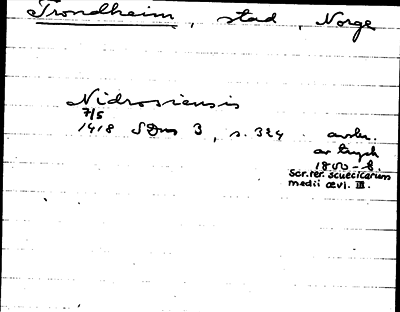 Trondheim, stad, Norge
Nidrosiensis
7/5
1418 SDns 3, s. 324 avskr.
av tryck
1800-t.
Scr. rer. suecicarum
medii ævi. III.